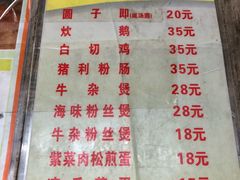 圆子即 20元
炊鹅 35元
白切鸡 35元
猪利粉肠 35元
牛杂煲 28元
海味粉丝煲 28元
牛杂粉丝煲 18元
紫菜肉松煎蛋 18元